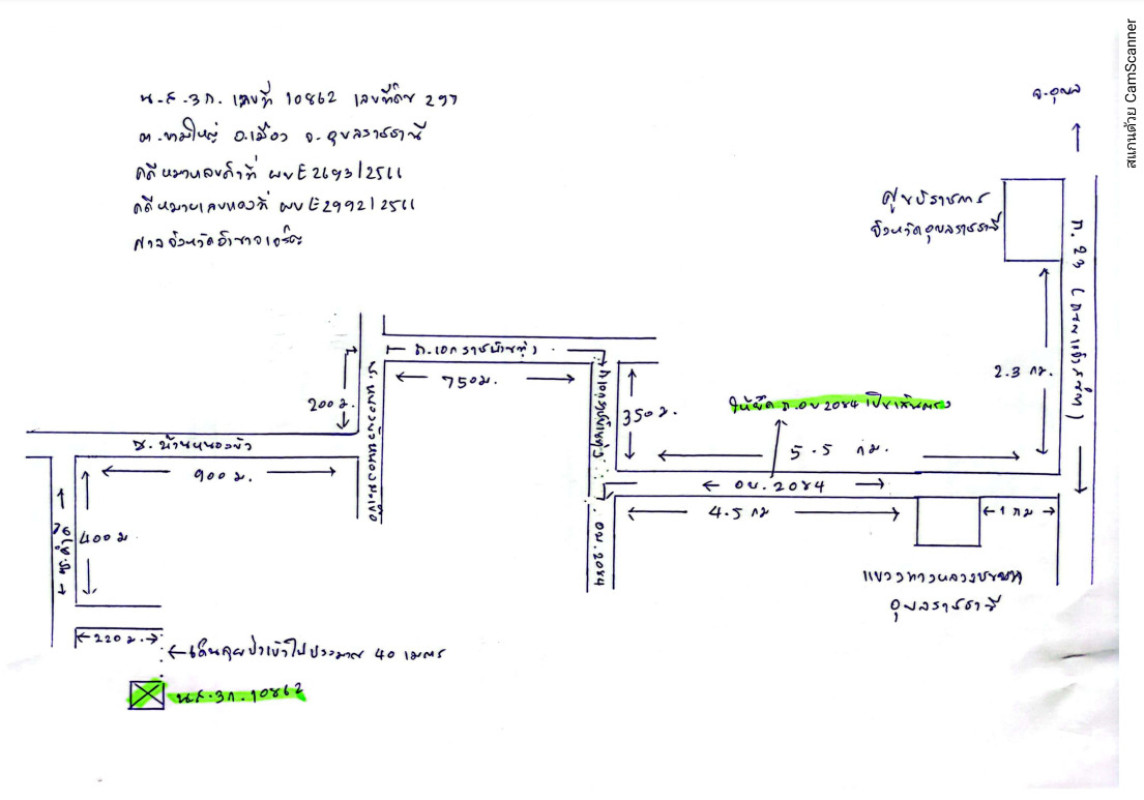 น.ส.3ก. เลขที่ 10862 เลขที่ดิน 297
ต.ขามใหญ่ อ.เมือง จ.อุบลราชธานี
คดีหมายเลขดำที่ ผบE2693/2561
คดีหมายเลขแดงที่ ผบE2992/2561
ศาลจังหวัดอำนาจเจริญ
สแกนด้วย CamScanner
จ.อุบล
ศูนย์ราชการ
จังหวัดอุบลราชธานี
2.3 กม.
750ม.
200ม.
350ม.
ให้ยึด ถ.อบ 2084 เป็นเส้นตรง
5.5 กม.
ซ.บ้านหนองบัว
900ม.
อบ.2084
4.5 กม
1 กม
400ม
อบ.2084
แขวงทางหลวงชนบท
อุบลราชธานี
220ม.
เดินลุยป่าเข้าไปประมาณ 40 เมตร
น.ส.3ก.10862